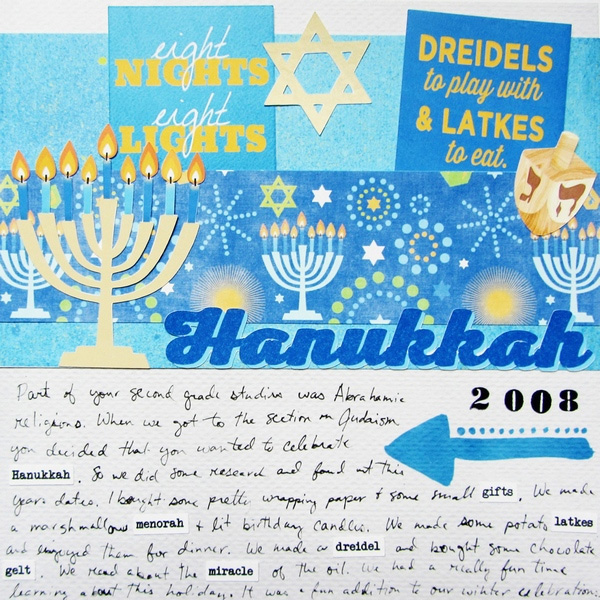 eight
NIGHTS
eight
LIGHTS
DREIDELS
to play with
& LATKES
to eat.
Hanukkah
2008
Part of your second grade studies was Abrahamic
religions. When we got to the section on Judaism
you decided that you wanted to celebrate
Hanukkah. So we did some research and found out this
years dates. I bought some pretty wrapping paper + some small gifts. We made
a marshmallow menorah + lit birthday candles. We made some potato latkes
and enjoyed them for dinner. We made a dreidel and bought some chocolate
gelt. We read about the miracle of the oil. We had a really fun time
learning about this holiday. It was a fun addition to our winter celebration.